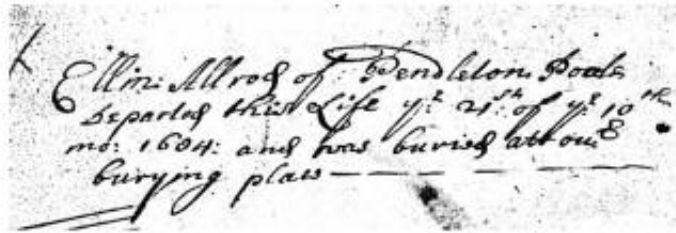 Ellin: Allrod of: Pendleton: Poole
departed this Life ye: 21st: of ye: 10th
mo: 1684: and was buried att our
burying place